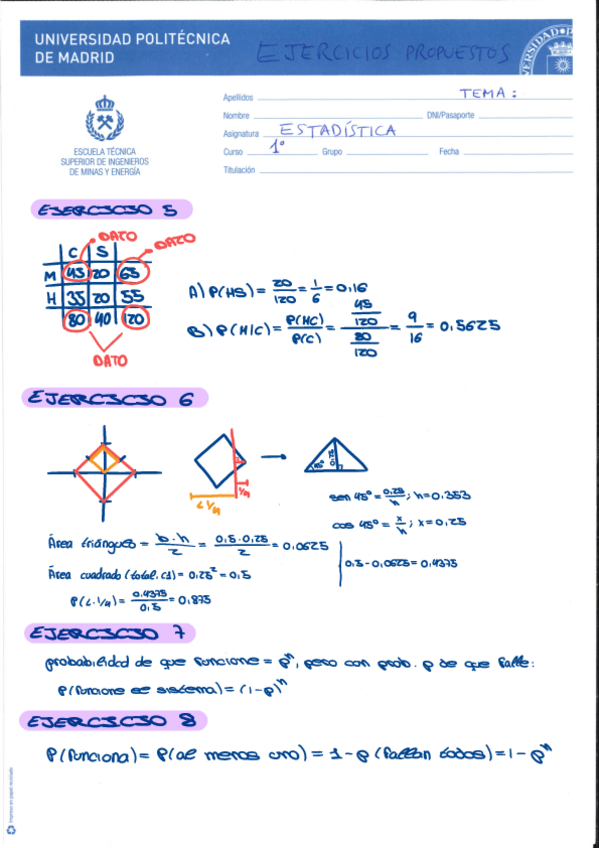 UNIVERSIDAD POLITÉCNICA
DE MADRID
EJERCICIOS PROPUESTOS
Apellidos TEMA:
Nombre DNI/Pasaporte
Asignatura ESTADÍSTICA
Curso 1º Grupo Fecha
Titulación
ESCUELA TÉCNICA
SUPERIOR DE INGENIEROS
DE MINAS Y ENERGÍA
EJERCICIO 5
C S DATO DATO
M 45 20 65
H 35 20 55
80 40 120
DATO
A) P(HS) = 20/120 = 1/6 = 0,16
B) P(H/C) = P(HC)/P(C) = (45/120)/(80/120) = 9/16 = 0,5625
EJERCICIO 6
45º 0,25
< 1/4 1/4
sen 45º = 0,25/h ; h = 0,353
cos 45º = x/h ; x = 0,25
Área triángulos = b·h/2 = 0,5·0,25/2 = 0,0625
0,5 - 0,0625 = 0,4375
Área cuadrado (total. c1) = 0,25² = 0,5
P(<. 1/4) = 0,4375/0,5 = 0,875
EJERCICIO 7
probabilidad de que funcione = pⁿ, pero con prob. p de que falle:
P(funcione el sistema) = (1-p)ⁿ
EJERCICIO 8
P(funciona) = P(al menos uno) = 1 - p (fallan todos) = 1 - pⁿ
Impreso en papel reciclado